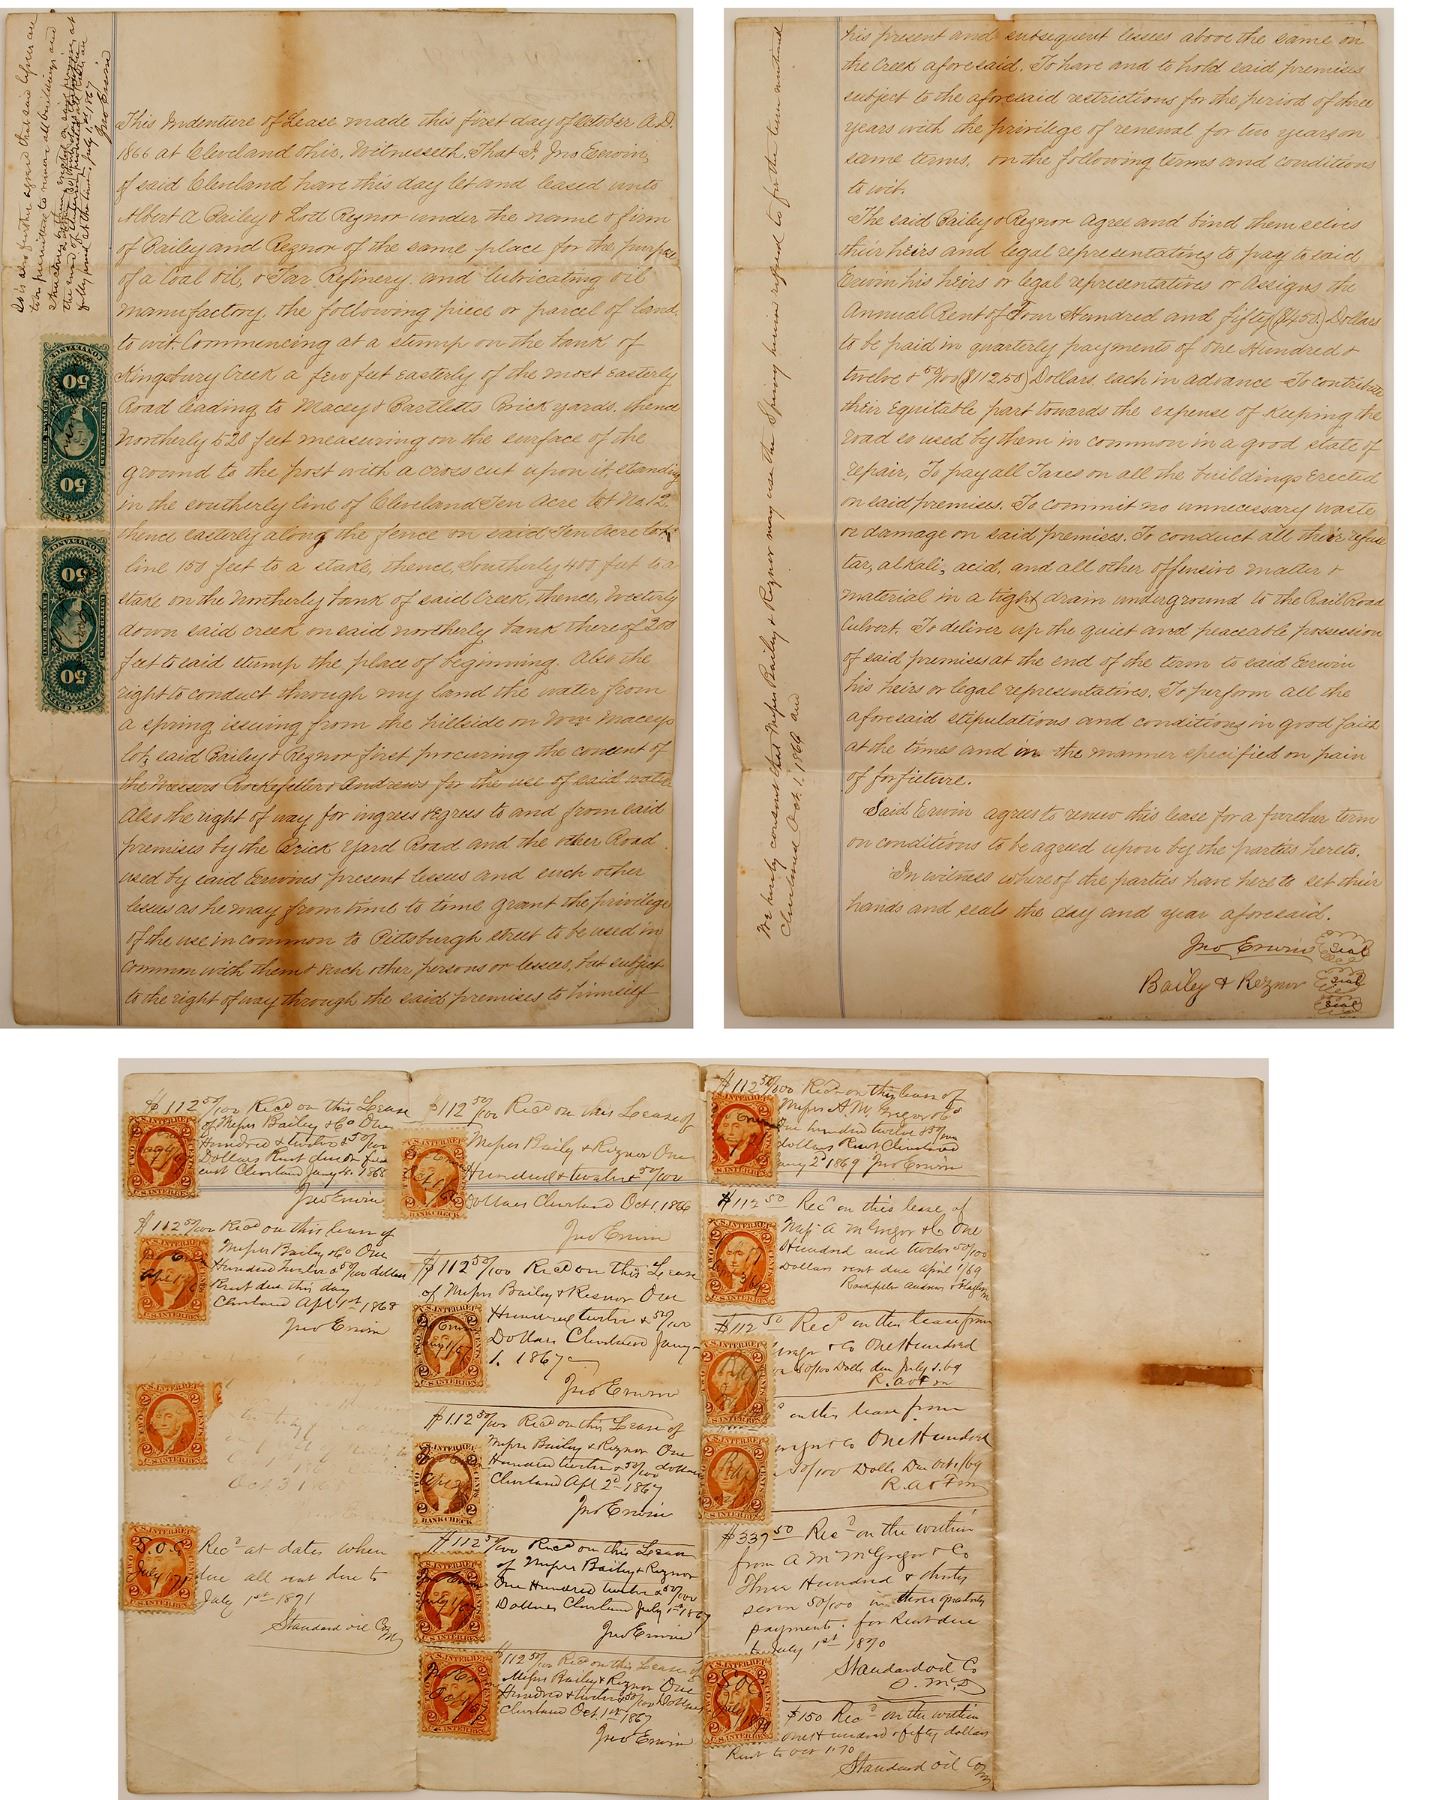 It is also further agreed that said lessees are
to be permitted to remove all buildings and
the end of
fully paid at the time, July 1st 1867
Jno Erwin
This Indenture of Lease made this first day of October A.D.
1866 at Cleveland Ohio. Witnesseth, That I, Jno Erwin,
of said Cleveland have this day let and leased unto
Albert A Bailey & Lott Reznor under the name & firm
of Bailey and Reznor of the same place for the purpose
of a Coal Oil, & Tar Refinery. and lubricating oil
manufactory. the following piece or parcel of land.
to wit. Commencing at a stump on the bank of
Kingsbury Creek a few feet easterly of the most easterly
Road leading to Macey & Bartletts Brick yards. thence
Northerly 520 feet measuring on the surface of the
ground to the post with a cross cut upon it, standing
in the southerly line of Cleveland Ten Acre lot No. 12.
thence easterly along the fence on said Ten Acre lot
line 150 feet to a stake, thence, Southerly 400 feet to a
stake on the Northerly bank of said Creek, thence, Westerly
down said creek on said northerly bank thereof 300
feet to said stump the place of beginning. Also the
right to conduct through my land the water from
a spring issuing from the hillside on Wm Maceys
lot, said Bailey & Reznor first procuring the consent of
the Messers Rockefeller & Andrews for the use of said water
Also the right of way for ingress & egress to and from said
premises by the Brick Yard Road and the other Road
used by said Erwins present lessees and such other
lessees as he may from time to time grant the privilige
of the use in common to Pittsburgh street to be used in
common with them & such other persons or lessees, but subject
to the right of way through the said premises to himself
We hereby consent that Messrs Bailey & Reznor may use the Spring herein referred to for the term mentioned
Cleveland Oct. 1. 1866 and
his present and subsequent lessees above the same on
the Creek aforesaid. To have and to hold said premises
subject to the aforesaid restrictions for the period of three
years with the privilege of renewal for two years on
same terms, on the following terms and conditions
to wit.
The said Bailey & Reznor agree and bind themselves
their heirs and legal representatives to pay to said
Erwin his heirs or legal representatives or Assigns the
Annual Rent of Four Hundred and fifty ($450.) Dollars
to be paid in quarterly payments of One Hundred &
twelve & 50/100 ($112.50) Dollars. each in advance To contribute
their Equitable part towards the expense of Keeping the
road so used by them in common in a good state of
repair, To pay all Taxes on all the buildings Erected
on said premises. To commit no unnecessary waste
or damage on said premises. To conduct all their refuse
tar, alkali, acid, and all other offensive matter &
material in a tight drain underground to the Rail Road
Culvert. To deliver up the quiet and peaceable possession
of said premises at the end of the term to said Erwin
his heirs or legal representatives. To perform all the
aforesaid stipulations and conditions in good faith
at the times and in the manner specified on pain
of forfieture.
Said Erwin agrees to renew this lease for a further term
on conditions to be agreed upon by the parties hereto.
In witness whereof the parties have here to set their
hands and seals the day and year aforesaid.
Jno Erwin Seal
Bailey & Reznor Seal
Seal
$112 50/100 Recd on this Lease
of Messrs Bailey & Co One
Hundred & twelve & 50/100
Dollars Rent due
Cleveland Jany 4. 1868
Jno Erwin
$112 50/100 Recd on this lease of
Messrs Bailey & Co One
Hundred twelve & 50/100 dollars
Rent due this day
Cleveland Apl 1st 1868
Jno Erwin
Oct 3 1868
Recd at dates when
due all rent due to
July 1st 1871
Standard oil Co
$112 50/100 Recd on this Lease of
Messrs Bailey & Reznor One
Hundred & twelve & 50/100
Dollars Cleveland Oct 1, 1866
Jno Erwin
$112 50/100 Recd on this Lease
of Messrs Bailey & Reznor One
Hundred twelve & 50/100
Dollars Cleveland Jany
1. 1867
Jno Erwin
$112 50/100 Recd on this Lease of
Messrs Bailey & Reznor One
Hundred twelve & 50/100 dollars
Cleveland Apl 2d 1867
Jno Erwin
$112 50/100 Recd on this Lease
of Messrs Bailey & Reznor
One Hundred twelve & 50/100
Dollars Cleveland July 1st 1867
Jno Erwin
$112 50/100 Recd on this Lease of
Messrs Bailey & Reznor One
Hundred & twelve 50/100 Dollars
Cleveland Oct. 1st 1867
Jno Erwin
$112 50/100 Recd on this lease of
Messrs A. McGregor & Co
One hundred twelve 50/100
dollars Rent Cleveland
Jany 2d 1869 Jno Erwin
$112 50 Recd on this lease of
Messrs A McGregor & Co One
Hundred and twelve 50/100
Dollars rent due April 1/69
Rockefeller Andrews & Flagler
$112 50 Recd on this lease from
& Co One Hundred
50/100 Dolls due July 1. 69
R. A & F
on this lease from
& Co One Hundred
50/100 Dolls Due Oct 1/69
R. A & F
$337 50 Recd on the within
from A McGregor & Co
Three Hundred & thirty
seven 50/100 in three quarterly
payments. for Rent due
to July 1st 1870
Standard oil Co
$150 Recd on the within
One Hundred & fifty dollars
Rent to Oct 1. 70
Standard oil Co